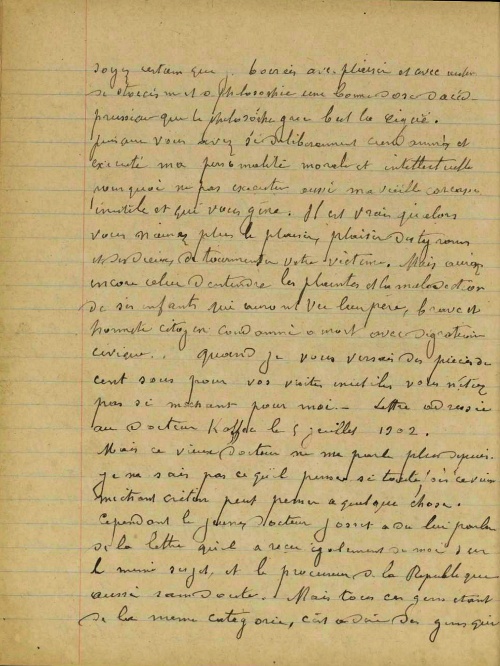 soyez certain que je boirais avec plaisir et avec
de stoïcisme et philosophie une bonne dose d'acide
prussique que le philosophe que but la Ciguë.
Puisque vous avez si délibérément condamnés et
exécuté ma personnalité morale et intellectuelle
pourquoi ne pas executer aussi ma vieille carcasse
inutile et qui vous gêne. Il est vrai qu'alors
vous n'aurez plus le plaisir, plaisir des tyrans
et des de tourmenter votre victime. Mais auriez
encore celui d'entendre les plaintes et la malediction
de ses enfants qui auront vu leur père, brave et
honnete citoyen condamné a mort avec
civique.. quand je vous versais des pièces de
cent sous pour vos visites inutiles vous n'étiez
pas si méchant pour moi - Lettre adressée
au Docteur le 5 juillet 1902.
Mais ce vieux Docteur ne me parle plus depuis.
je ne sais pas ce qu'il pense si toutefois ce vieux
méchant crétin peut penser a quelque chose.
Cependant le jeune docteur Josset a du lui parler
de la lettre qu'il a reçu également de moi sur
le même sujet, et le procureur de la République
aussi sans doute. Mais tous ces gens étant
de la meme categorie, c'est a dire des gens qui